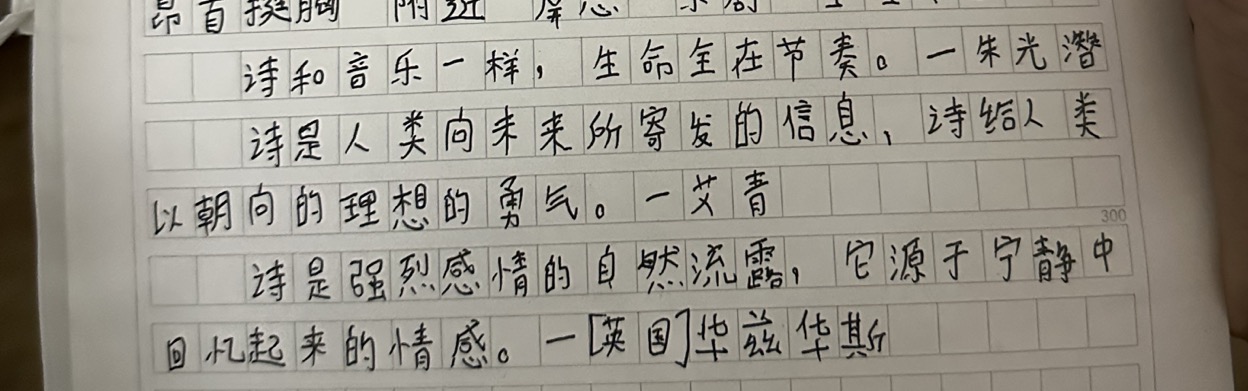 昂首挺胸 附近 屏息
诗和音乐一样,生命全在节奏。一朱光潜
诗是人类向未来所寄发的信息,诗给人类
以朝向的理想的勇气。一艾青
300
诗是强烈感情的自然流露,它源于宁静中
回忆起来的情感。一[英国]华兹华斯